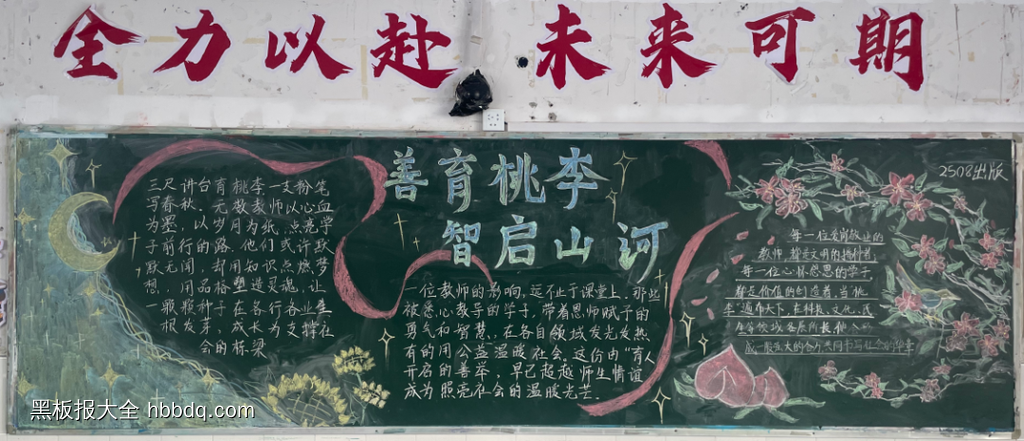 全力以赴 未来可期
善育桃李
智启山河
2508出版
三尺讲台育桃李一支粉笔
写春秋。无数教师以心血
为墨,以岁月为纸,点亮学
子前行的路.他们或许默
默无闻,却用知识点燃梦
想,用品格塑造灵魂,让
一颗颗种子在各行各业生
根发芽,成长为支撑社
会的栋梁
一位教师的影响,远不止于课堂上.那些
被悉心教导的学子,带着恩师赋予的
勇气和智慧,在各自领域发光发热
有的用公益温暖社会。这份由“育人
开启的善举,早已超越师生情谊
成为照亮社会的温暖光芒.
每一位爱岗敬业的
教师,都是文明的播种者,
每一位心怀感恩的学子
都是价值的创造者,当桃
李遍布天下,在科技、文化、民
生等领域各展所长
成一股强大的合力共同书写社会的华章
黑板报大全 hbbdq.com